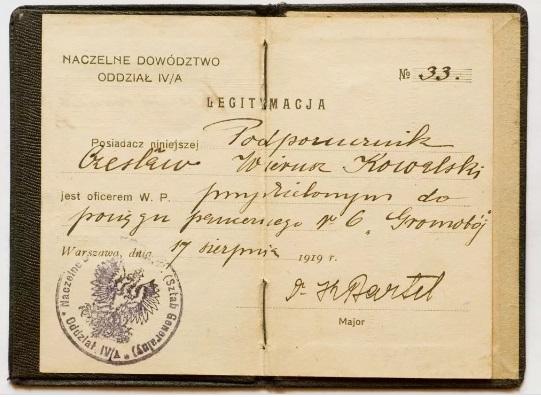 NACZELNE DOWÓDZTWO
ODDZIAŁ IV/A
№ 33.
LEGITYMACJA
Posiadacz niniejszej Podporucznik
Czesław Wierusz Kowalski
jest oficerem W. P. przydzielonym do
pociągu pancernego № 6 „Gromobój
Warszawa, dnia 17 sierpnia 1919 r.
Dr K Bartel
Major
Naczelne (Sztab Generalny) * Oddział IV/A *